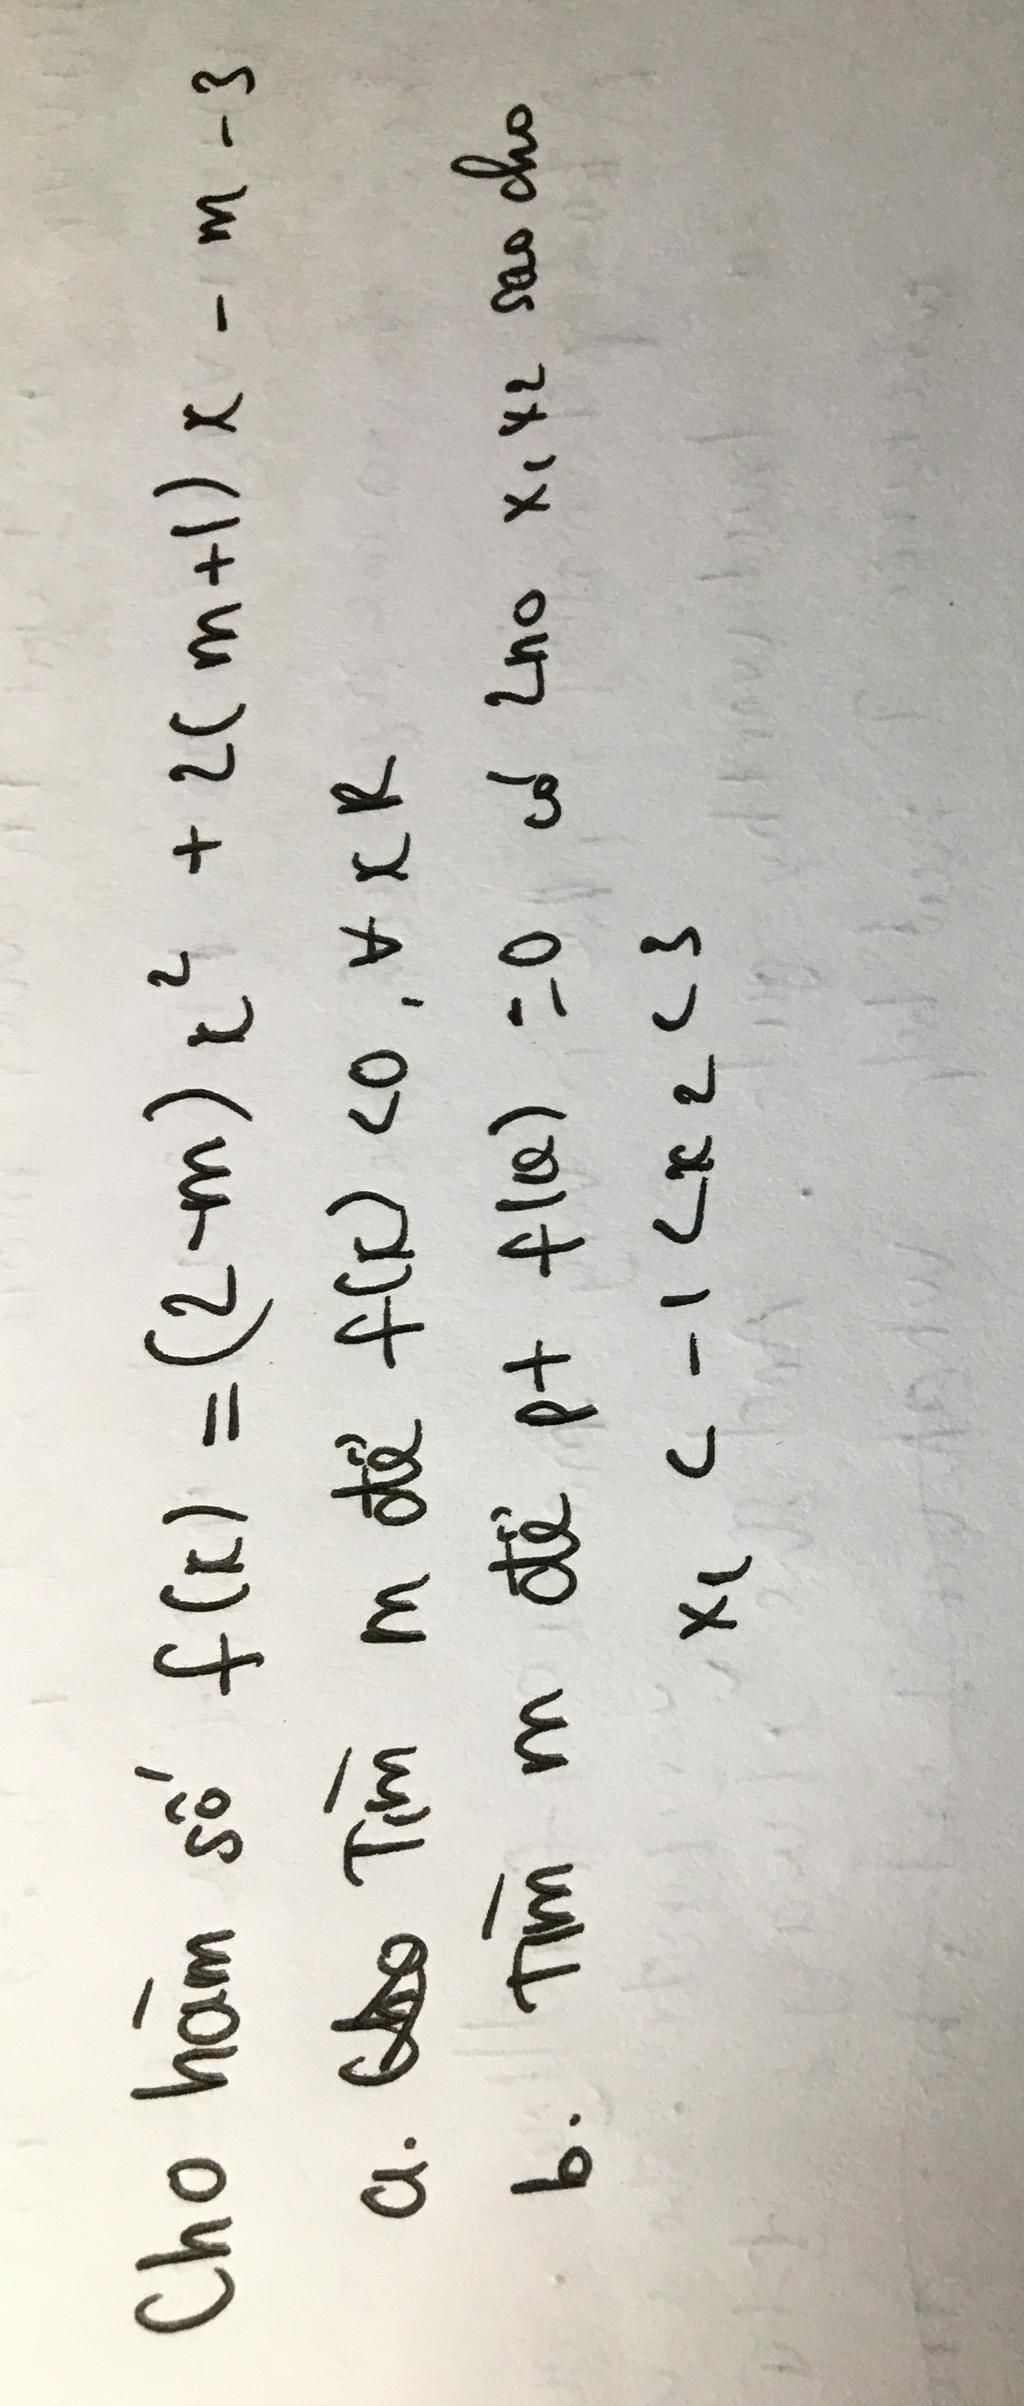 Cho hàm số f(x) = (2-m)x² + 2(m+1)x - m - 3
a. Tìm m để f(x) <0, ∀ x R
b. Tìm m để pt f(x) =0 có 2no x₁, x₂ sao cho
x₁ < -1 < x₂ < 3